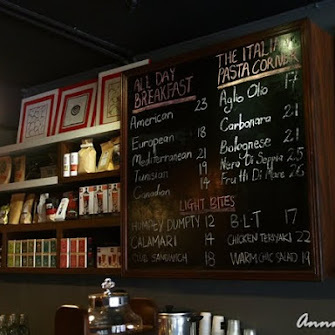 ALL DAY
BREAKFAST
American 23
European 18
Mediterranean 21
Tunisian 19
Canadian 14
THE ITALIAN
PASTA CORNER
Aglio Olio 17
Carbonara 21
Bolognese 21
Nero Di Seppia 25
Frutti Di Mare 26
LIGHT BITES
HUMPEY DUMPTY 12
CALAMARI 14
CLUB SANDWICH 18
B·L·T 17
CHICKEN TERIYAKI 22
WARM CHIC SALAD 19